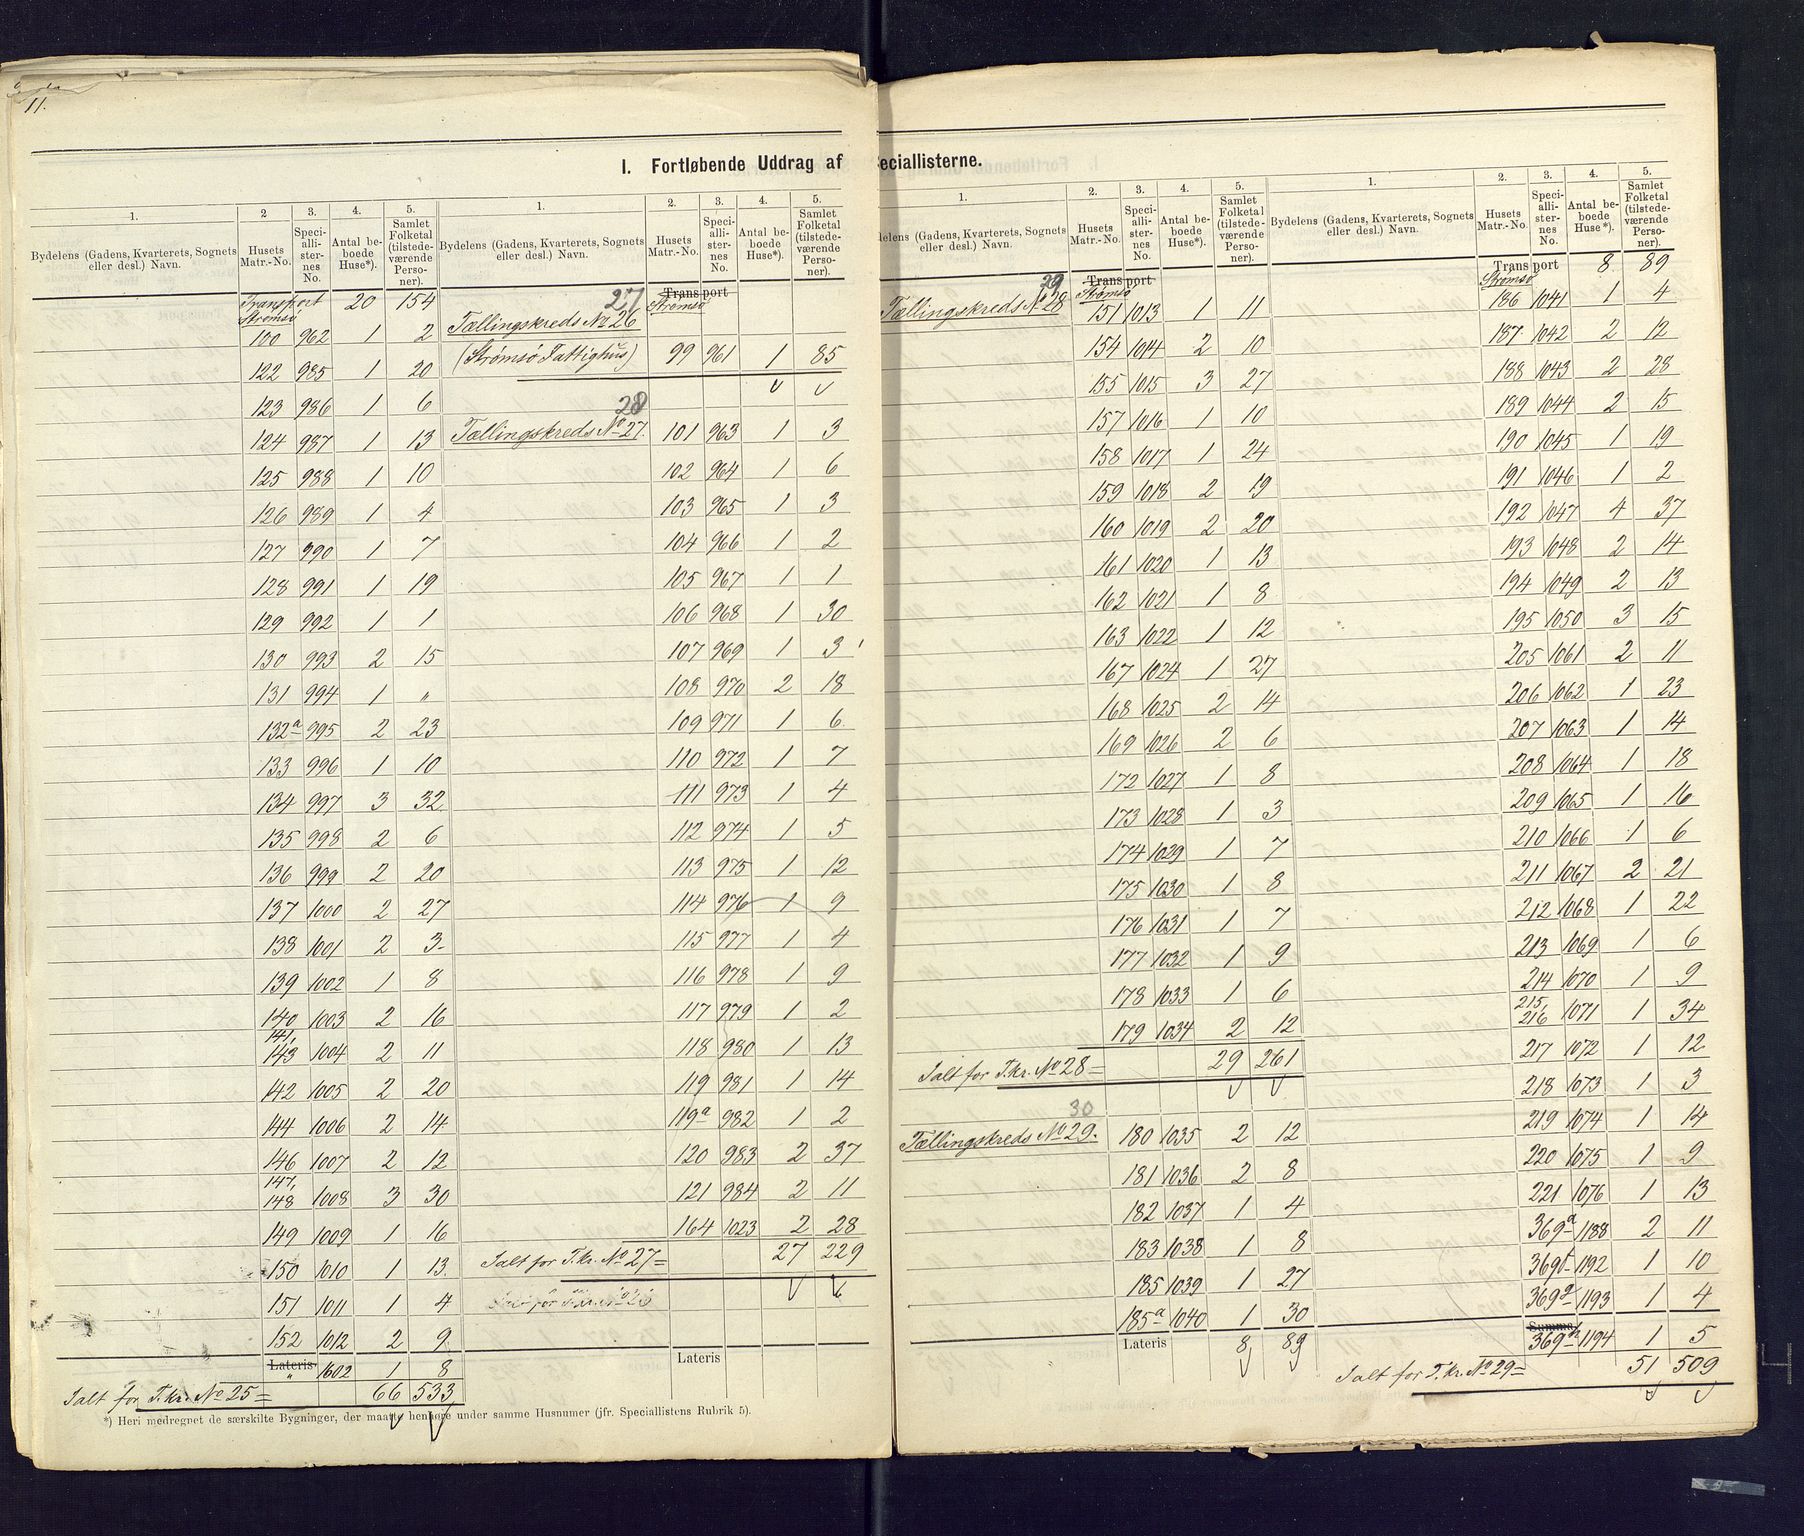 11.
I. Fortløbende Uddrag af Speciallisterne.
1. 2 3. 4. 5.
Bydelens (Gadens, Kvarterets, Sognets eller desl.) Navn. Husets Matr.-No. Speciallisternes No. Antal beboede Huse*). Samlet Folketal (tilstedeværende Personer).
Transport 20 154
Strømsø
100 962 1 2
122 985 1 20
123 986 1 6
124 987 1 13
125 988 1 10
126 989 1 4
127 990 1 7
128 991 1 19
129 992 1 1
130 993 2 15
131 994 1 „
132a 995 2 23
133 996 1 10
134 997 3 32
135 998 2 6
136 999 2 20
137 1000 2 27
138 1001 2 3
139 1002 1 8
140 1003 2 16
141,
143 1004 2 11
142 1005 2 20
144 1006 2 14
146 1007 2 12
147,
148 1008 3 30
149 1009 1 16
150 1010 1 13
151 1011 1 4
152 1012 2 9
Lateris
„ 1602 1 8
Ialt for T.kr. No 25 = 66 533
*) Heri medregnet de særskilte Bygninger, der maatte henhøre under samme Husnumer (jfr. Speciallistens Rubrik 5).
1. 2. 3. 4. 5.
Bydelens (Gadens, Kvarterets, Sognets eller desl.) Navn. Husets Matr.-No. Speciallisternes No. Antal beboede Huse*). Samlet Folketal (tilstedeværende Personer).
Transport
27 Strømsø
Tællingskreds No 26
(Strømsø Fattighus) 99 961 1 85
28
Tællingskreds No 27. 101 963 1 3
102 964 1 6
103 965 1 3
104 966 1 2
105 967 1 1
106 968 1 30
107 969 1 3
108 970 2 18
109 971 1 6
110 972 1 7
111 973 1 4
112 974 1 5
113 975 1 12
114 976 1 9
115 977 1 4
116 978 1 9
117 979 1 2
118 980 1 13
119 981 1 14
119a 982 1 2
120 983 2 37
121 984 2 11
164 1023 2 28
Ialt for T.kr. No 27 = 27 229
Lateris
1. 2. 3. 4. 5.
delens (Gadens, Kvarterets, Sognets eller desl.) Navn. Husets Matr.-No. Speciallisternes No. Antal beboede Huse*). Samlet Folketal (tilstedeværende Personer).
Transport
29 Strømsø
Tællingskreds No 28 151 1013 1 11
154 1014 2 10
155 1015 3 27
157 1016 1 10
158 1017 1 24
159 1018 2 19
160 1019 2 20
161 1020 1 13
162 1021 1 8
163 1022 1 12
167 1024 1 27
168 1025 2 14
169 1026 2 6
172 1027 1 8
173 1028 1 3
174 1029 1 7
175 1030 1 8
176 1031 1 7
177 1032 1 9
178 1033 1 6
179 1034 2 12
Ialt for T.kr. No 28 = 29 261
30
Tællingskreds No 29. 180 1035 2 12
181 1036 2 8
182 1037 1 4
183 1038 1 8
185 1039 1 27
185a 1040 1 30
Lateris 8 89
1. 2. 3. 4. 5.
Bydelens (Gadens, Kvarterets, Sognets eller desl.) Navn. Husets Matr.-No. Speciallisternes No. Antal beboede Huse*). Samlet Folketal (tilstedeværende Personer).
Transport 8 89
Strømsø
186 1041 1 4
187 1042 2 12
188 1043 2 28
189 1044 2 15
190 1045 1 19
191 1046 1 2
192 1047 4 37
193 1048 2 14
194 1049 2 13
195 1050 3 15
205 1061 2 11
206 1062 1 23
207 1063 1 14
208 1064 1 18
209 1065 1 16
210 1066 1 6
211 1067 2 21
212 1068 1 22
213 1069 1 6
214 1070 1 9
215,
216 1071 1 34
217 1072 1 12
218 1073 1 3
219 1074 1 14
220 1075 1 9
221 1076 1 13
369a 1188 2 11
369 1192 1 10
369g 1193 1 4
Summa
369h 1194 1 5
Ialt for T.kr. No 29 = 51 509